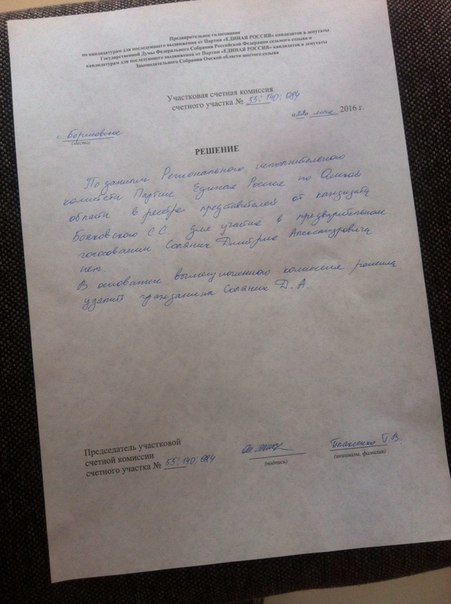 Предварительное голосование
по кандидатурам для последующего выдвижения от Партии «ЕДИНАЯ РОССИЯ» кандидатов в депутаты
Государственной Думы Федерального Собрания Российской Федерации седьмого созыва и
кандидатурам для последующего выдвижения от Партии «ЕДИНАЯ РОССИЯ» кандидатов в депутаты
Законодательного Собрания Омской области шестого созыва
Участковая счетная комиссия
счетного участка № 55/140/084
«22» мая 2016 г.
(место)
РЕШЕНИЕ
По данным Регионального исполнительного
комитета Партии Единая Россия по Омской
области в реестре представителей от кандидата
С.С. для участия в предварительном
голосовании Соляник Дмитрия Александровича
нет
В основании вышеизложенного комиссия решила
удалить гражданина Соляник Д.А.
Председатель участковой
счетной комиссии
счетного участка № 55/140/084
(подпись)
(инициалы, фамилия)